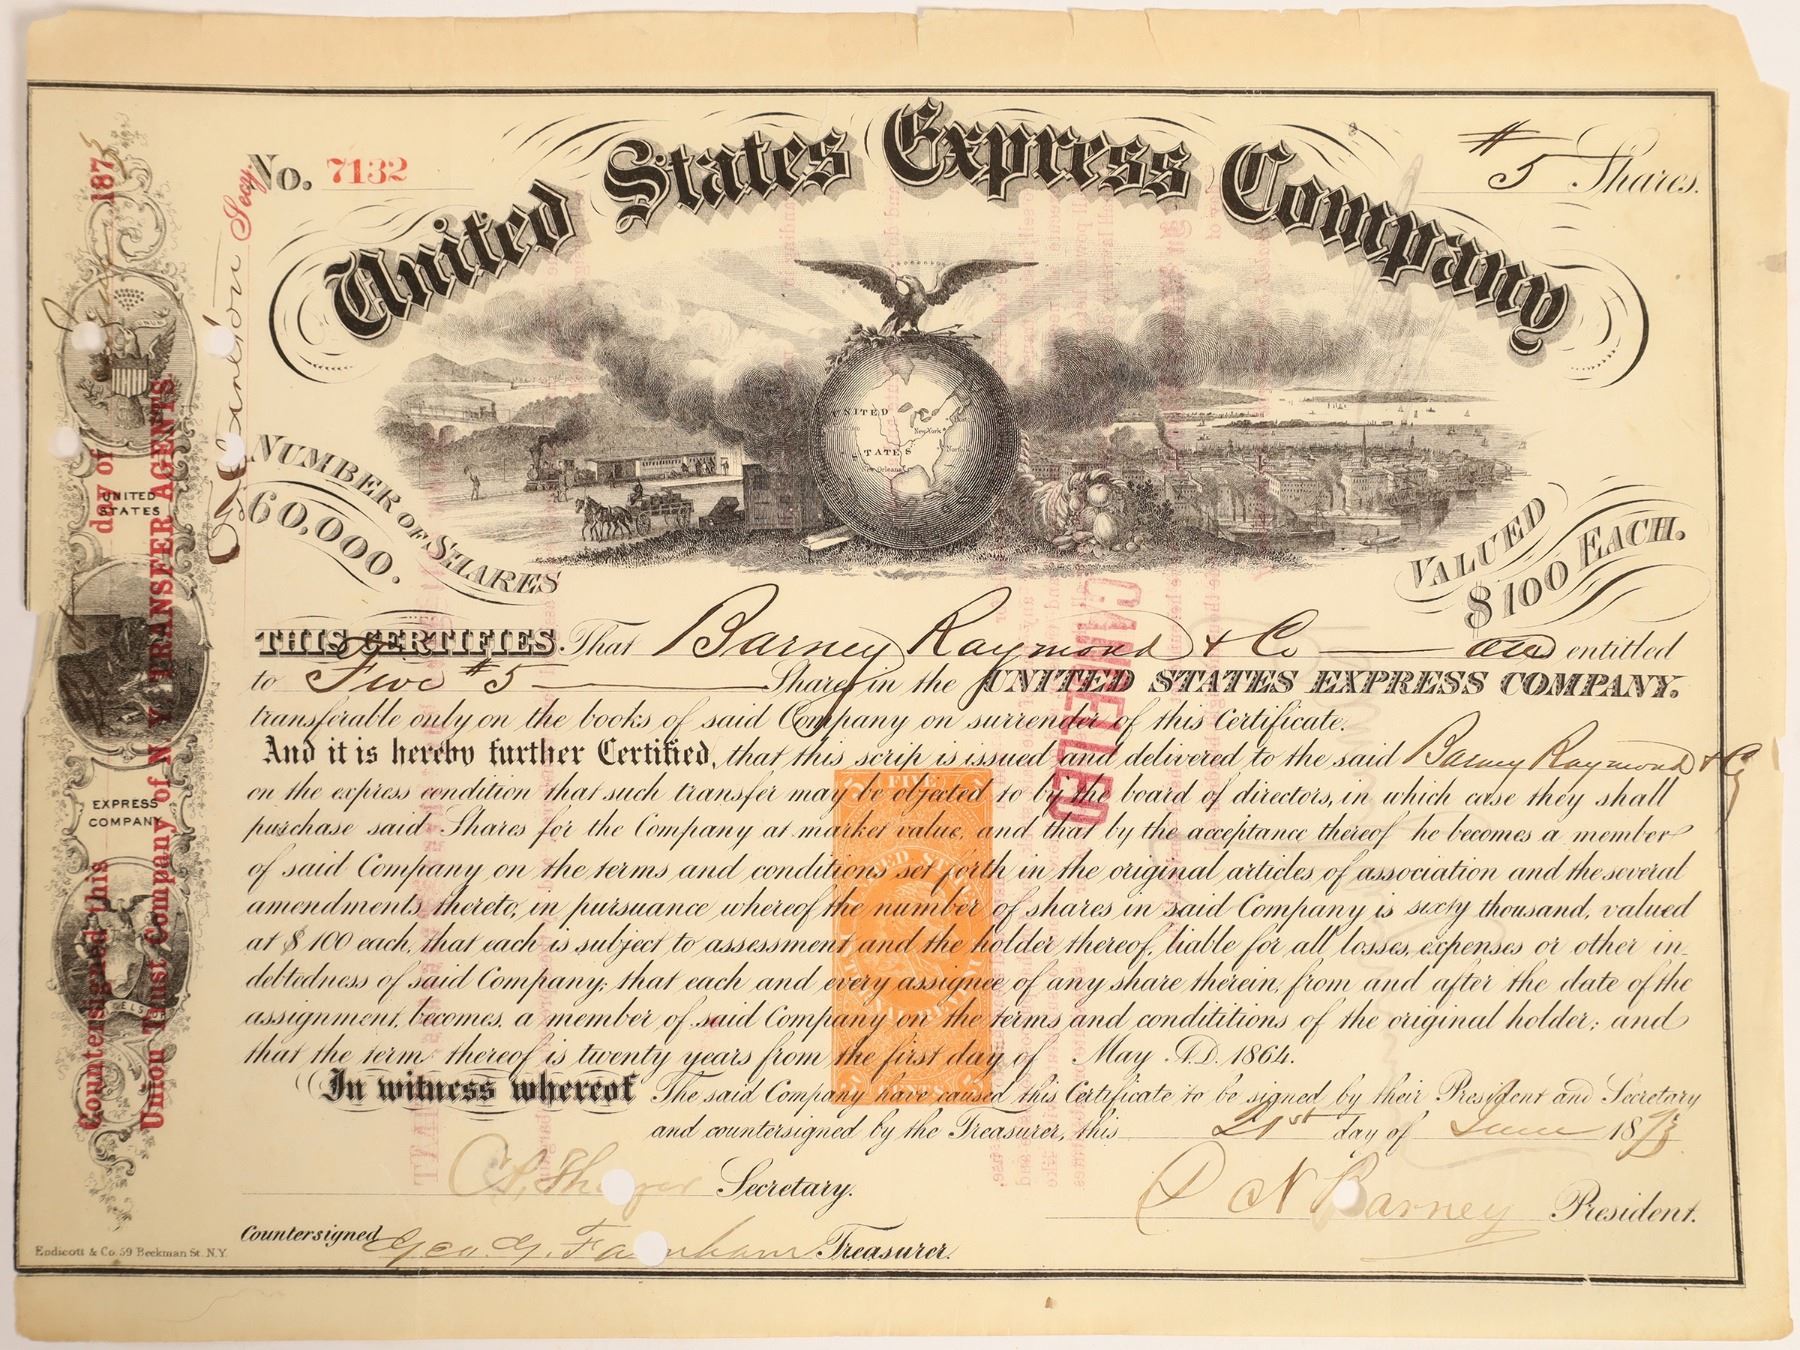 No. 7132
# 5 Shares.
United States Express Company
UNITED
STATES
New York
New Orleans
NUMBER OF SHARES
60,000.
VALUED
$100 EACH.
THIS CERTIFIES. That Barney Raymond & Co are entitled
to Five #5 Shares in the UNITED STATES EXPRESS COMPANY.
transferable only on the books of said Company on surrender of this Certificate.
And it is hereby further Certified, that this scrip is issued and delivered to the said Barney Raymond & Co
on the express condition that such transfer may be objected to by the board of directors, in which case they shall
purchase said Shares for the Company at market value, and that by the acceptance thereof he becomes a member
of said Company on the terms and conditions set forth in the original articles of association and the several
amendments thereto, in pursuance whereof the number of shares in said Company is sixty thousand, valued
at $100 each, that each is subject to assessment and the holder thereof, liable for all losses, expenses or other in-
debtedness of said Company; that each and every assignee of any share therein, from and after the date of the
assignment, becomes, a member of said Company on the terms and condititions of the original holder; and
that the term thereof is twenty years from the first day of May A.D. 1864.
In witness whereof The said Company have caused this Certificate to be signed by their President and Secretary
and countersigned by the Treasurer, this 21st day of June 1873
Secretary.
D N Barney President.
Countersigned Geo. G. Farnham Treasurer.
Endicott & Co. 59 Beekman St. N.Y.
CANCELLED
FIVE
UNITED STATES
CENTS
Countersigned this day of 1873
Union Trust Company of N.Y. TRANSFER AGENTS
Secy.
UNITED
STATES
EXPRESS
COMPANY